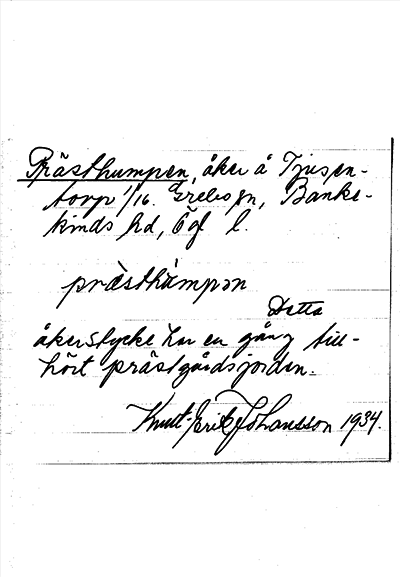 Prästhumpen, åker å Tjusen-
torp 1/16. Grebo sn, Banke-
kinds hd, Ögl l.
præsthùmpən
Detta
åkerstycke har en gång till-
hört prästgårdsjorden.
Knut-Erik Johansson 1934.